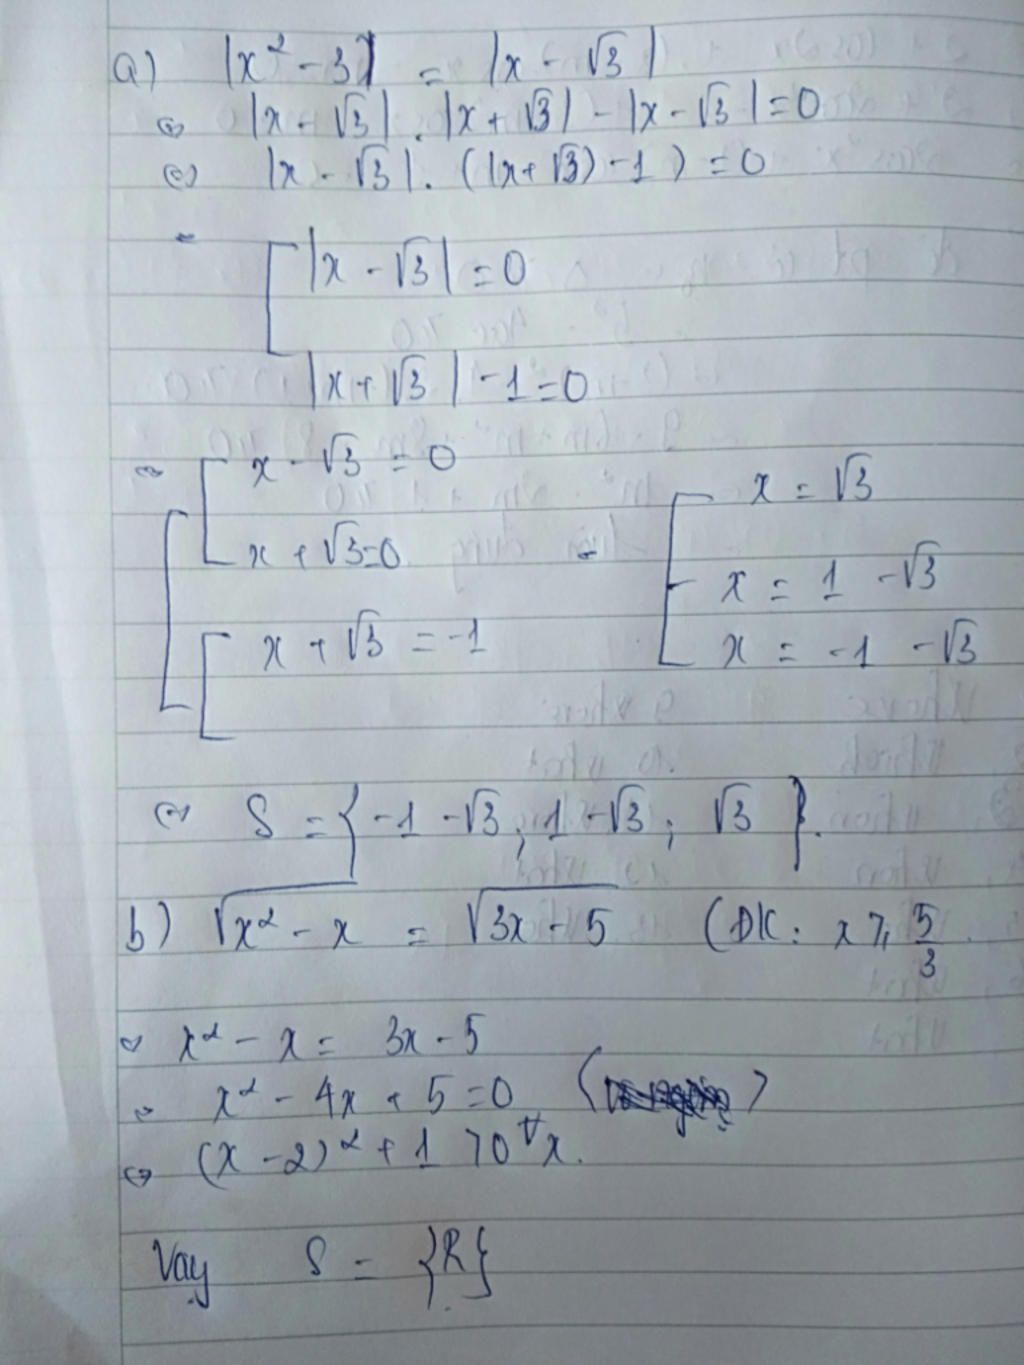 a) |x² - 3| = |x - √3|
⇔ |x - √3| . |x + √3| - |x - √3| = 0
⇔ |x - √3| . (|x + √3) - 1) = 0
|x - √3| = 0
|x + √3| - 1 = 0
⇔ x - √3 = 0
x + √3 = 0
x + √3 = -1
x = √3
x = 1 - √3
x = -1 - √3
⇔ S = {-1 - √3 ; 1 - √3 ; √3}.
b) √x² - x = √3x - 5 (ĐK: x ≥ 5/3
⇔ x² - x = 3x - 5
⇔ x² - 4x + 5 = 0
⇔ (x - 2)² + 1 > 0 ∀x.
Vậy S = {R}